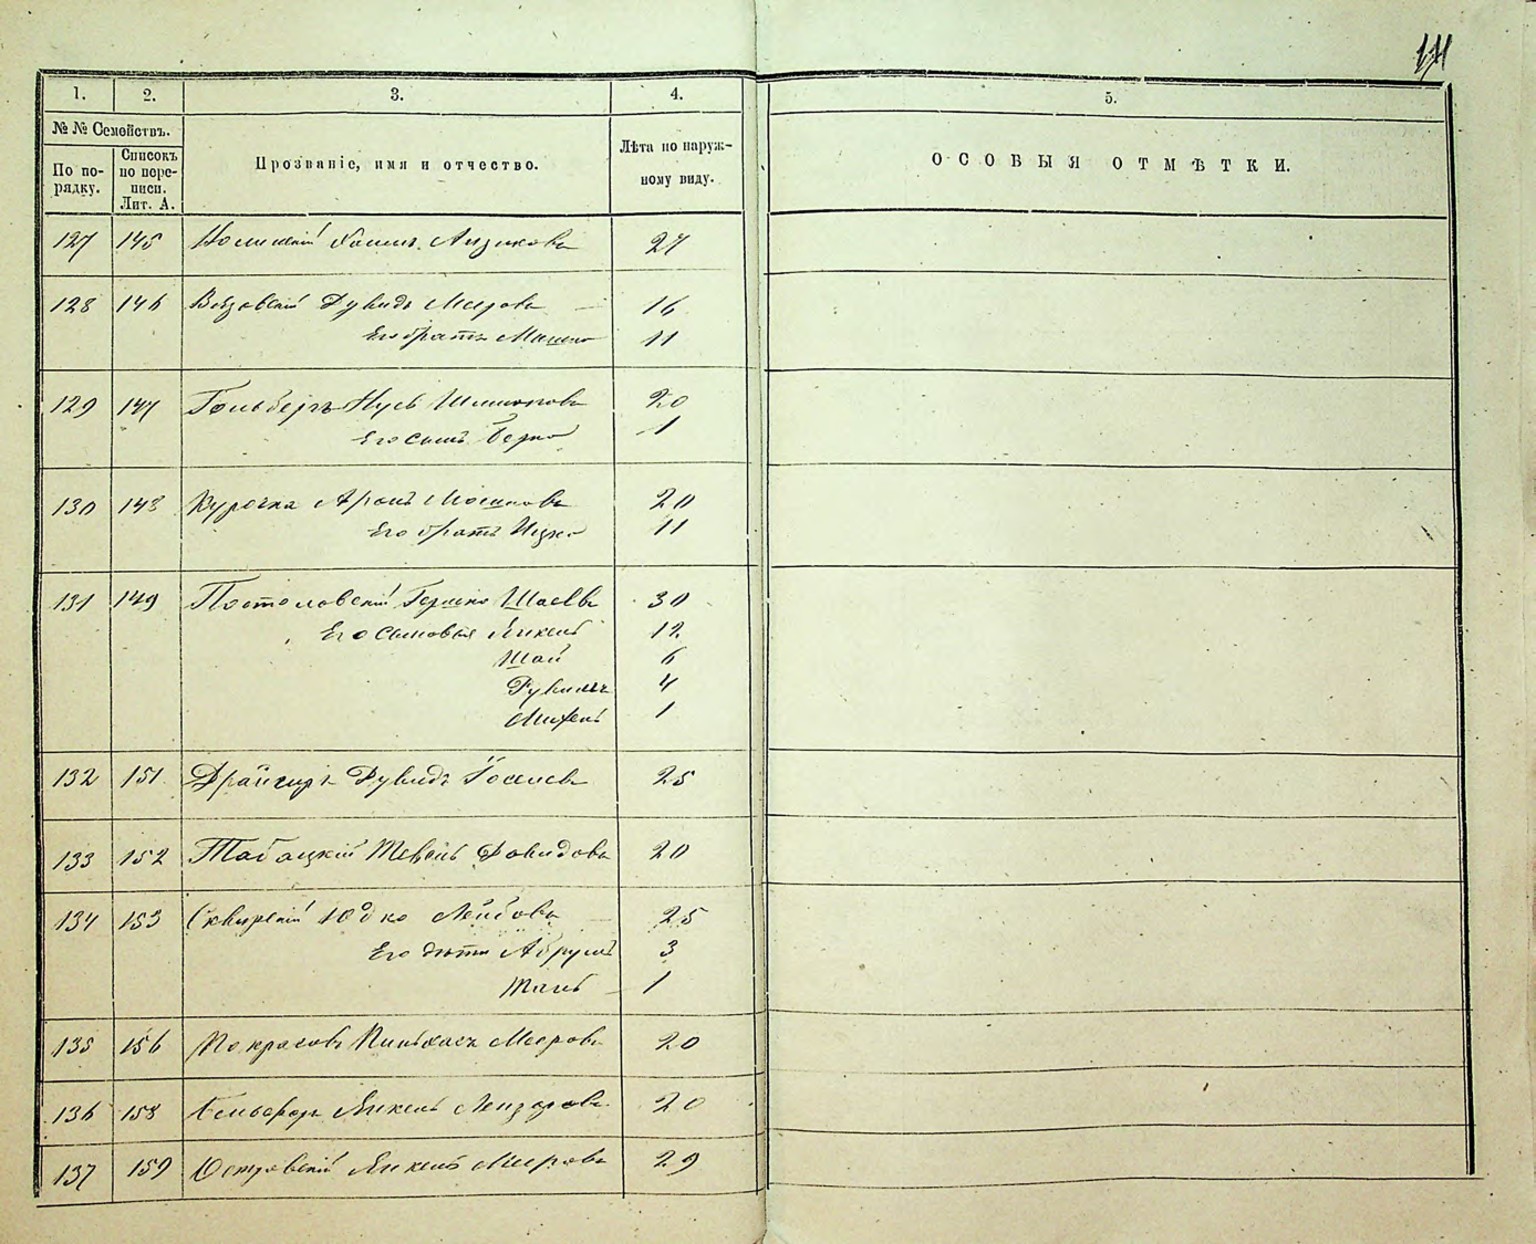 1.
2.
3.
4.
5.
№ № Семействъ.
По по-
рядку.
Списокъ
по пере-
писи.
Лит. А.
Прозваніе, имя и отчество.
Лѣта по наруж-
ному виду.
ОСОБЫЯ ОТМѢТКИ.
127 145 27
128 146 Дувидъ Мееровъ 16
Его братъ Мошко 11
129 147 Гольберъ Нусь Шимоновъ 20
Его сынъ Берко 1
130 148 Курочка Аронъ Мошковъ 20
Его братъ Ицко 11
131 149 Постоловскій Гершко Шаевъ 30
Его сыновья Янкель 12
Шая 6
Рувинъ 4
1
132 151 Дувидъ Іоселевъ 25
133 152 Табацкій Шевель Давидовъ 20
134 153 Сквирскій Юдко Лейбовъ 25
Его дѣти Абрумъ 3
1
135 156 Покрасовъ Пинхасъ Мееровъ 20
136 158 Янкель Лейзеровъ 20
137 159 Островскій Янкель Мееровъ 29